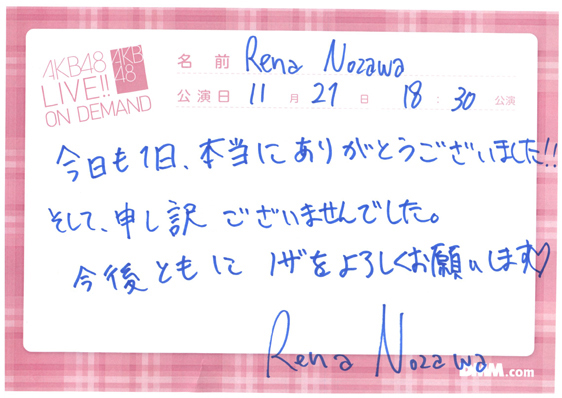 AKB48
LIVE!!
ON DEMAND
AKB
48
名前 Rena Nozawa
公演日 11月21日 18:30 公演
今日も1日、本当にありがとうございました!!
そして、申し訳ございませんでした。
今後ともに ノザをよろしくお願いします♡
Rena Nozawa
DMM.com